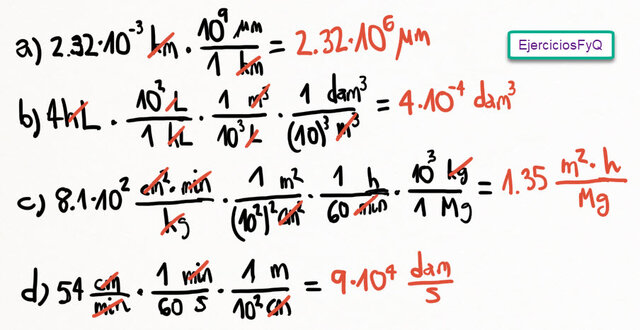 a) 2.32·10⁻³ km · 10⁹ μm / 1 km = 2.32·10⁶ μm
EjerciciosFyQ
b) 4hL · 10² L / 1 hL · 1 m³ / 10³ L · 1 dam³ / (10)³ m³ = 4·10⁻⁴ dam³
c) 8.1·10² cm²·min / kg · 1 m² / (10²)² cm² · 1 h / 60 min · 10³ kg / 1 Mg = 1.35 m²·h / Mg
d) 54 cm / min · 1 min / 60 s · 1 m / 10² cm = 9·10⁴ dam / s